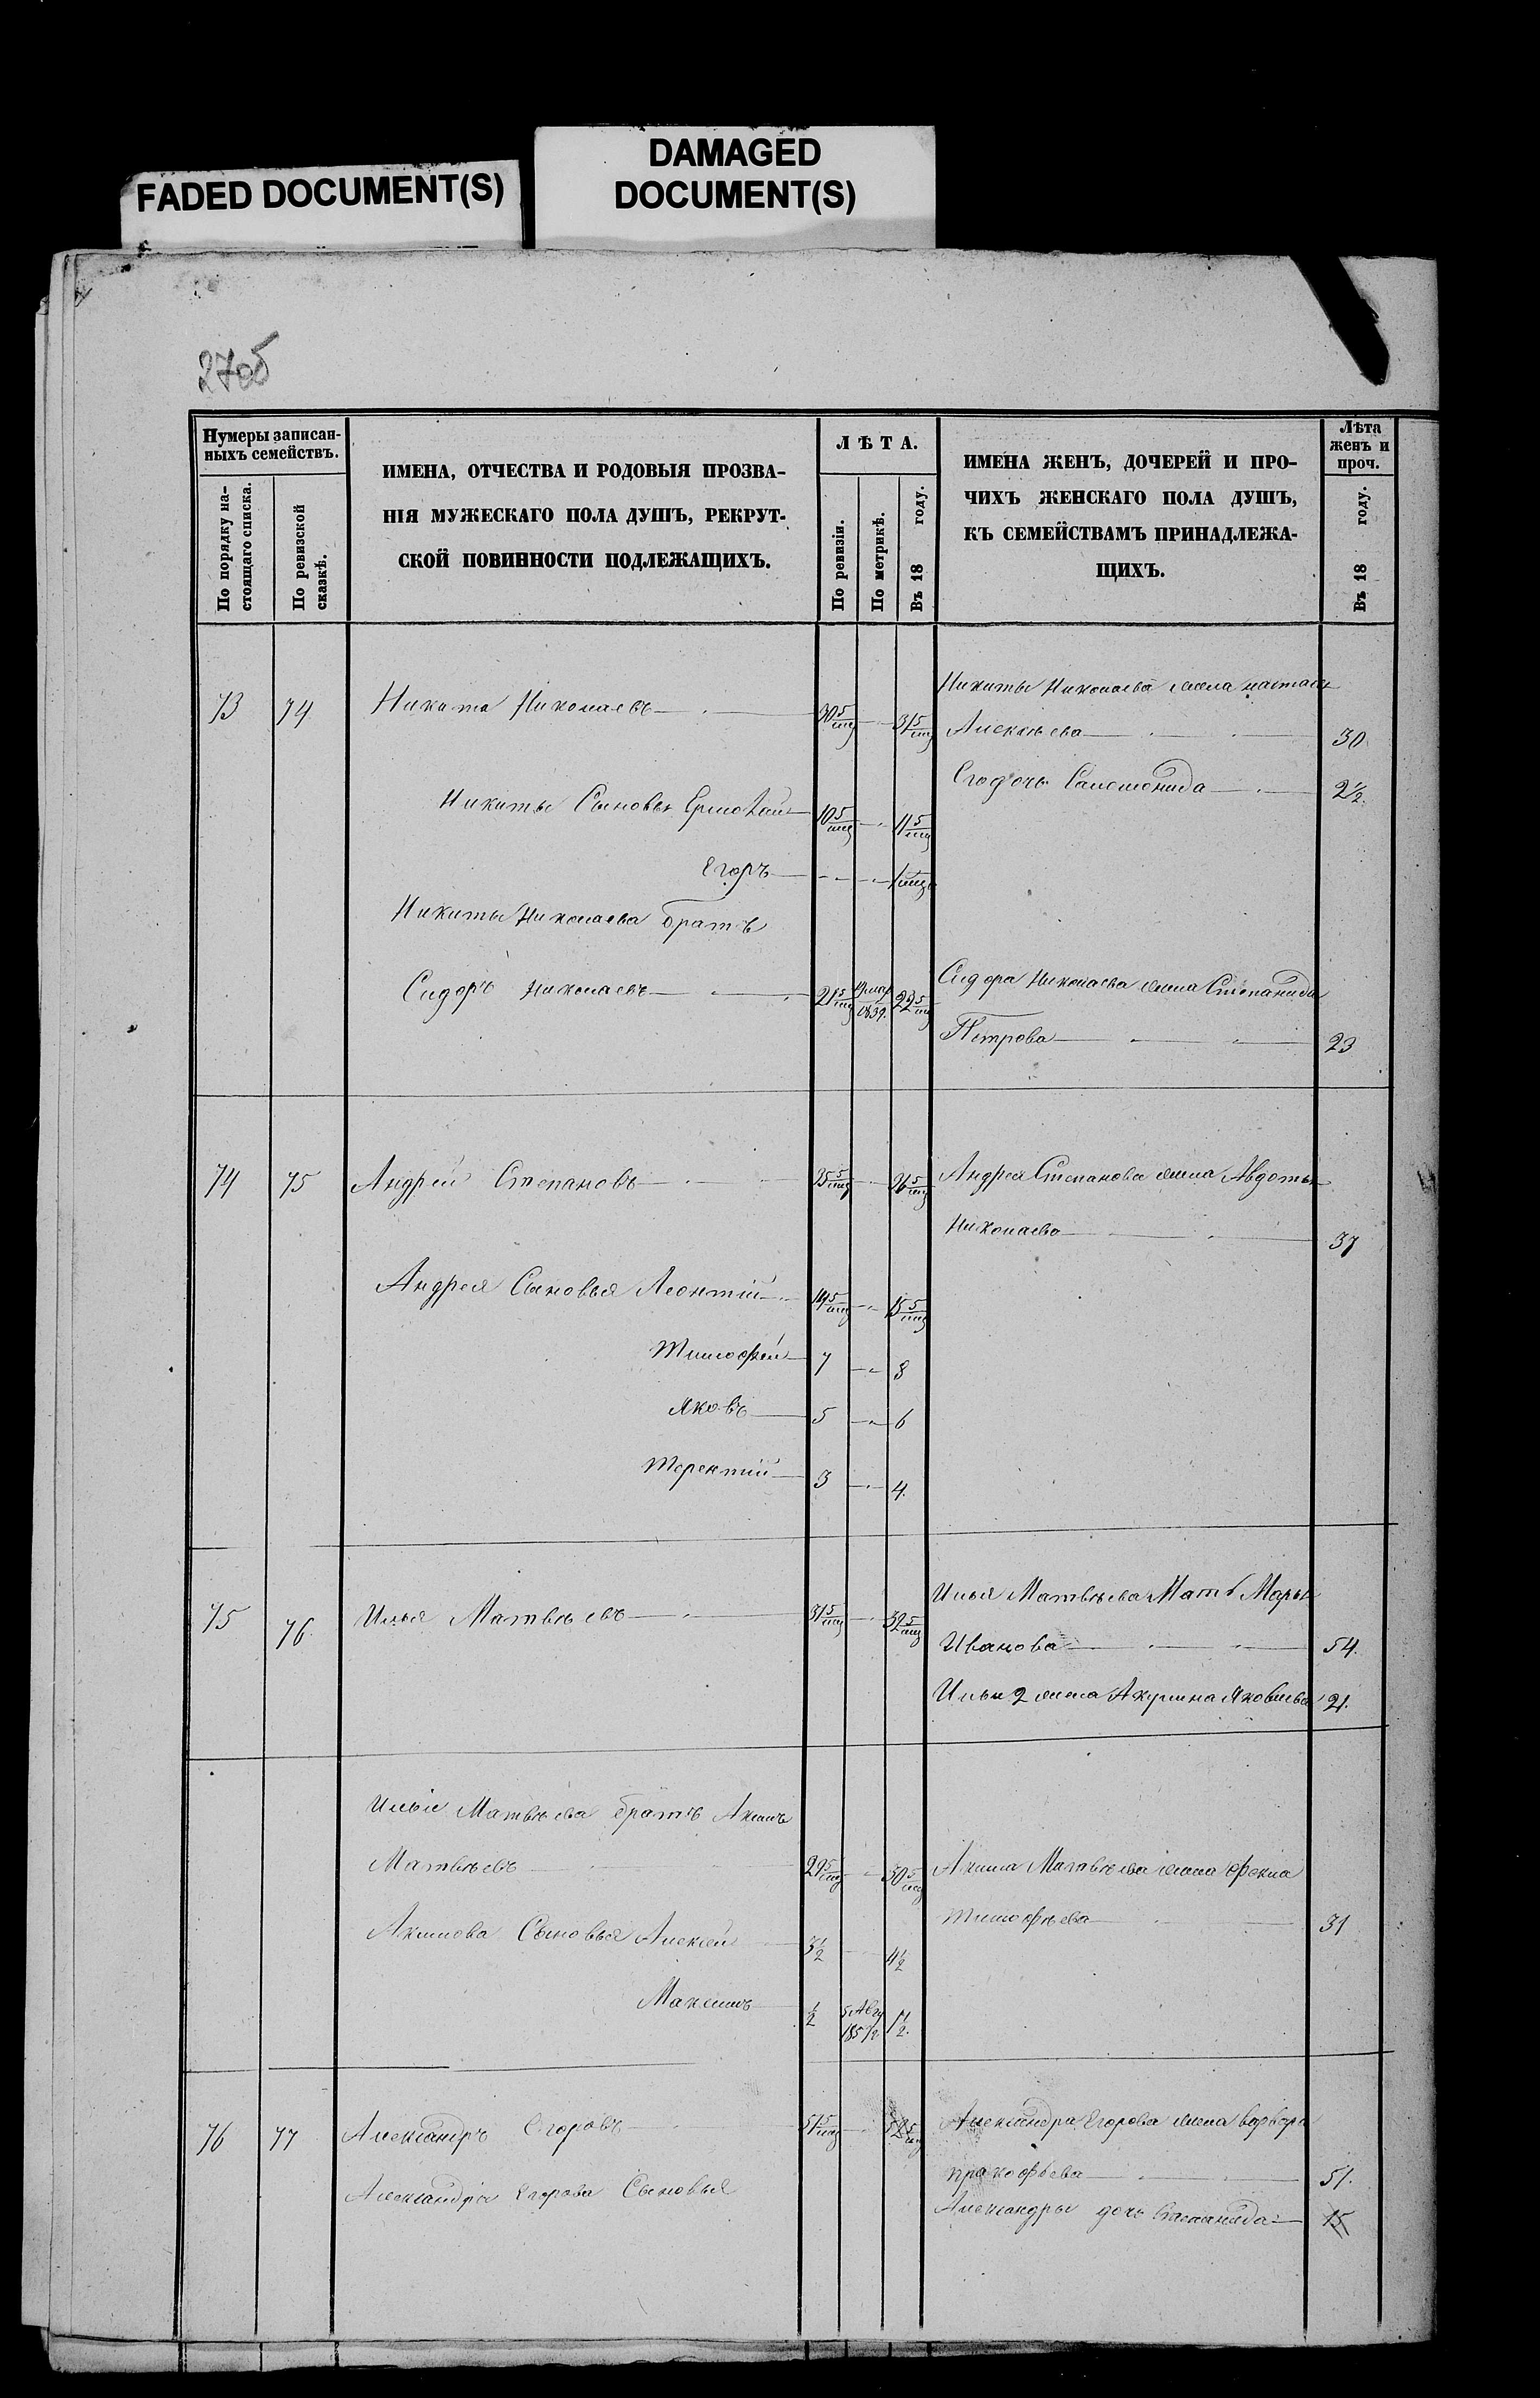 FADED DOCUMENT(S)
DAMAGED
DOCUMENT(S)
270б
Нумеры записан-
ныхъ семействъ.
По порядку на-
стоящаго списка.
По ревизской
сказкѣ.
ИМЕНА, ОТЧЕСТВА И РОДОВЫЯ ПРОЗВА-
НІЯ МУЖЕСКАГО ПОЛА ДУШЪ, РЕКРУТ-
СКОЙ ПОВИННОСТИ ПОДЛЕЖАЩИХЪ.
ЛѢТА.
По ревизіи.
По метрикѣ.
Въ 18 году.
ИМЕНА ЖЕНЪ, ДОЧЕРЕЙ И ПРО-
ЧИХЪ ЖЕНСКАГО ПОЛА ДУШЪ,
КЪ СЕМЕЙСТВАМЪ ПРИНАДЛЕЖА-
ЩИХЪ.
Лѣта
женъ и
проч.
Въ 18 году.
73 74 Никита Николаевъ 30 5/мц 31 5/мц
Никиты Николаева жена Настасья
Алексѣева 30
Его дочь Саломонида 2 1/2
Никиты Сыновья Ермолай 10 5/мц 11 5/мц
Егоръ
Никиты Николаева братъ
Сидоръ Николаевъ 21 5/мц 1839. 22 5/мц
Сидора Николаева жена Степанида
Петрова 23
74 75 Андрей Степановъ 35 5/мц 36 5/мц
Андрея Степанова жена Авдотья
Николаева 37
Андрея Сыновья Леонтій 14 5/мц 15 5/мц
Тимофей 7 8
Яковъ 5 6
Терентій 3 4.
75 76. Илья Матвѣевъ 31 5/мц 32 5/мц
Илья Матвѣева Мать Марья
Иванова 54.
Ильи 2 жена Акулина Яковлева 21.
Ильи Матвѣева братъ Акимъ
Матвѣевъ 29 5/мц 30 5/мц
Акима Матвѣева жена Фекла
Тимофѣева 31
Акимова Сыновья Алексей 3 1/2 4 1/2
Максимъ 1/2 5 Авгу 1857 1 1/2.
76 77 Александръ Егоровъ 51 5/мц 52 5/мц
Александра Егорова жена Варвара
Прокофьева 51.
Александра Егорова Сыновья
Александры дочь 15